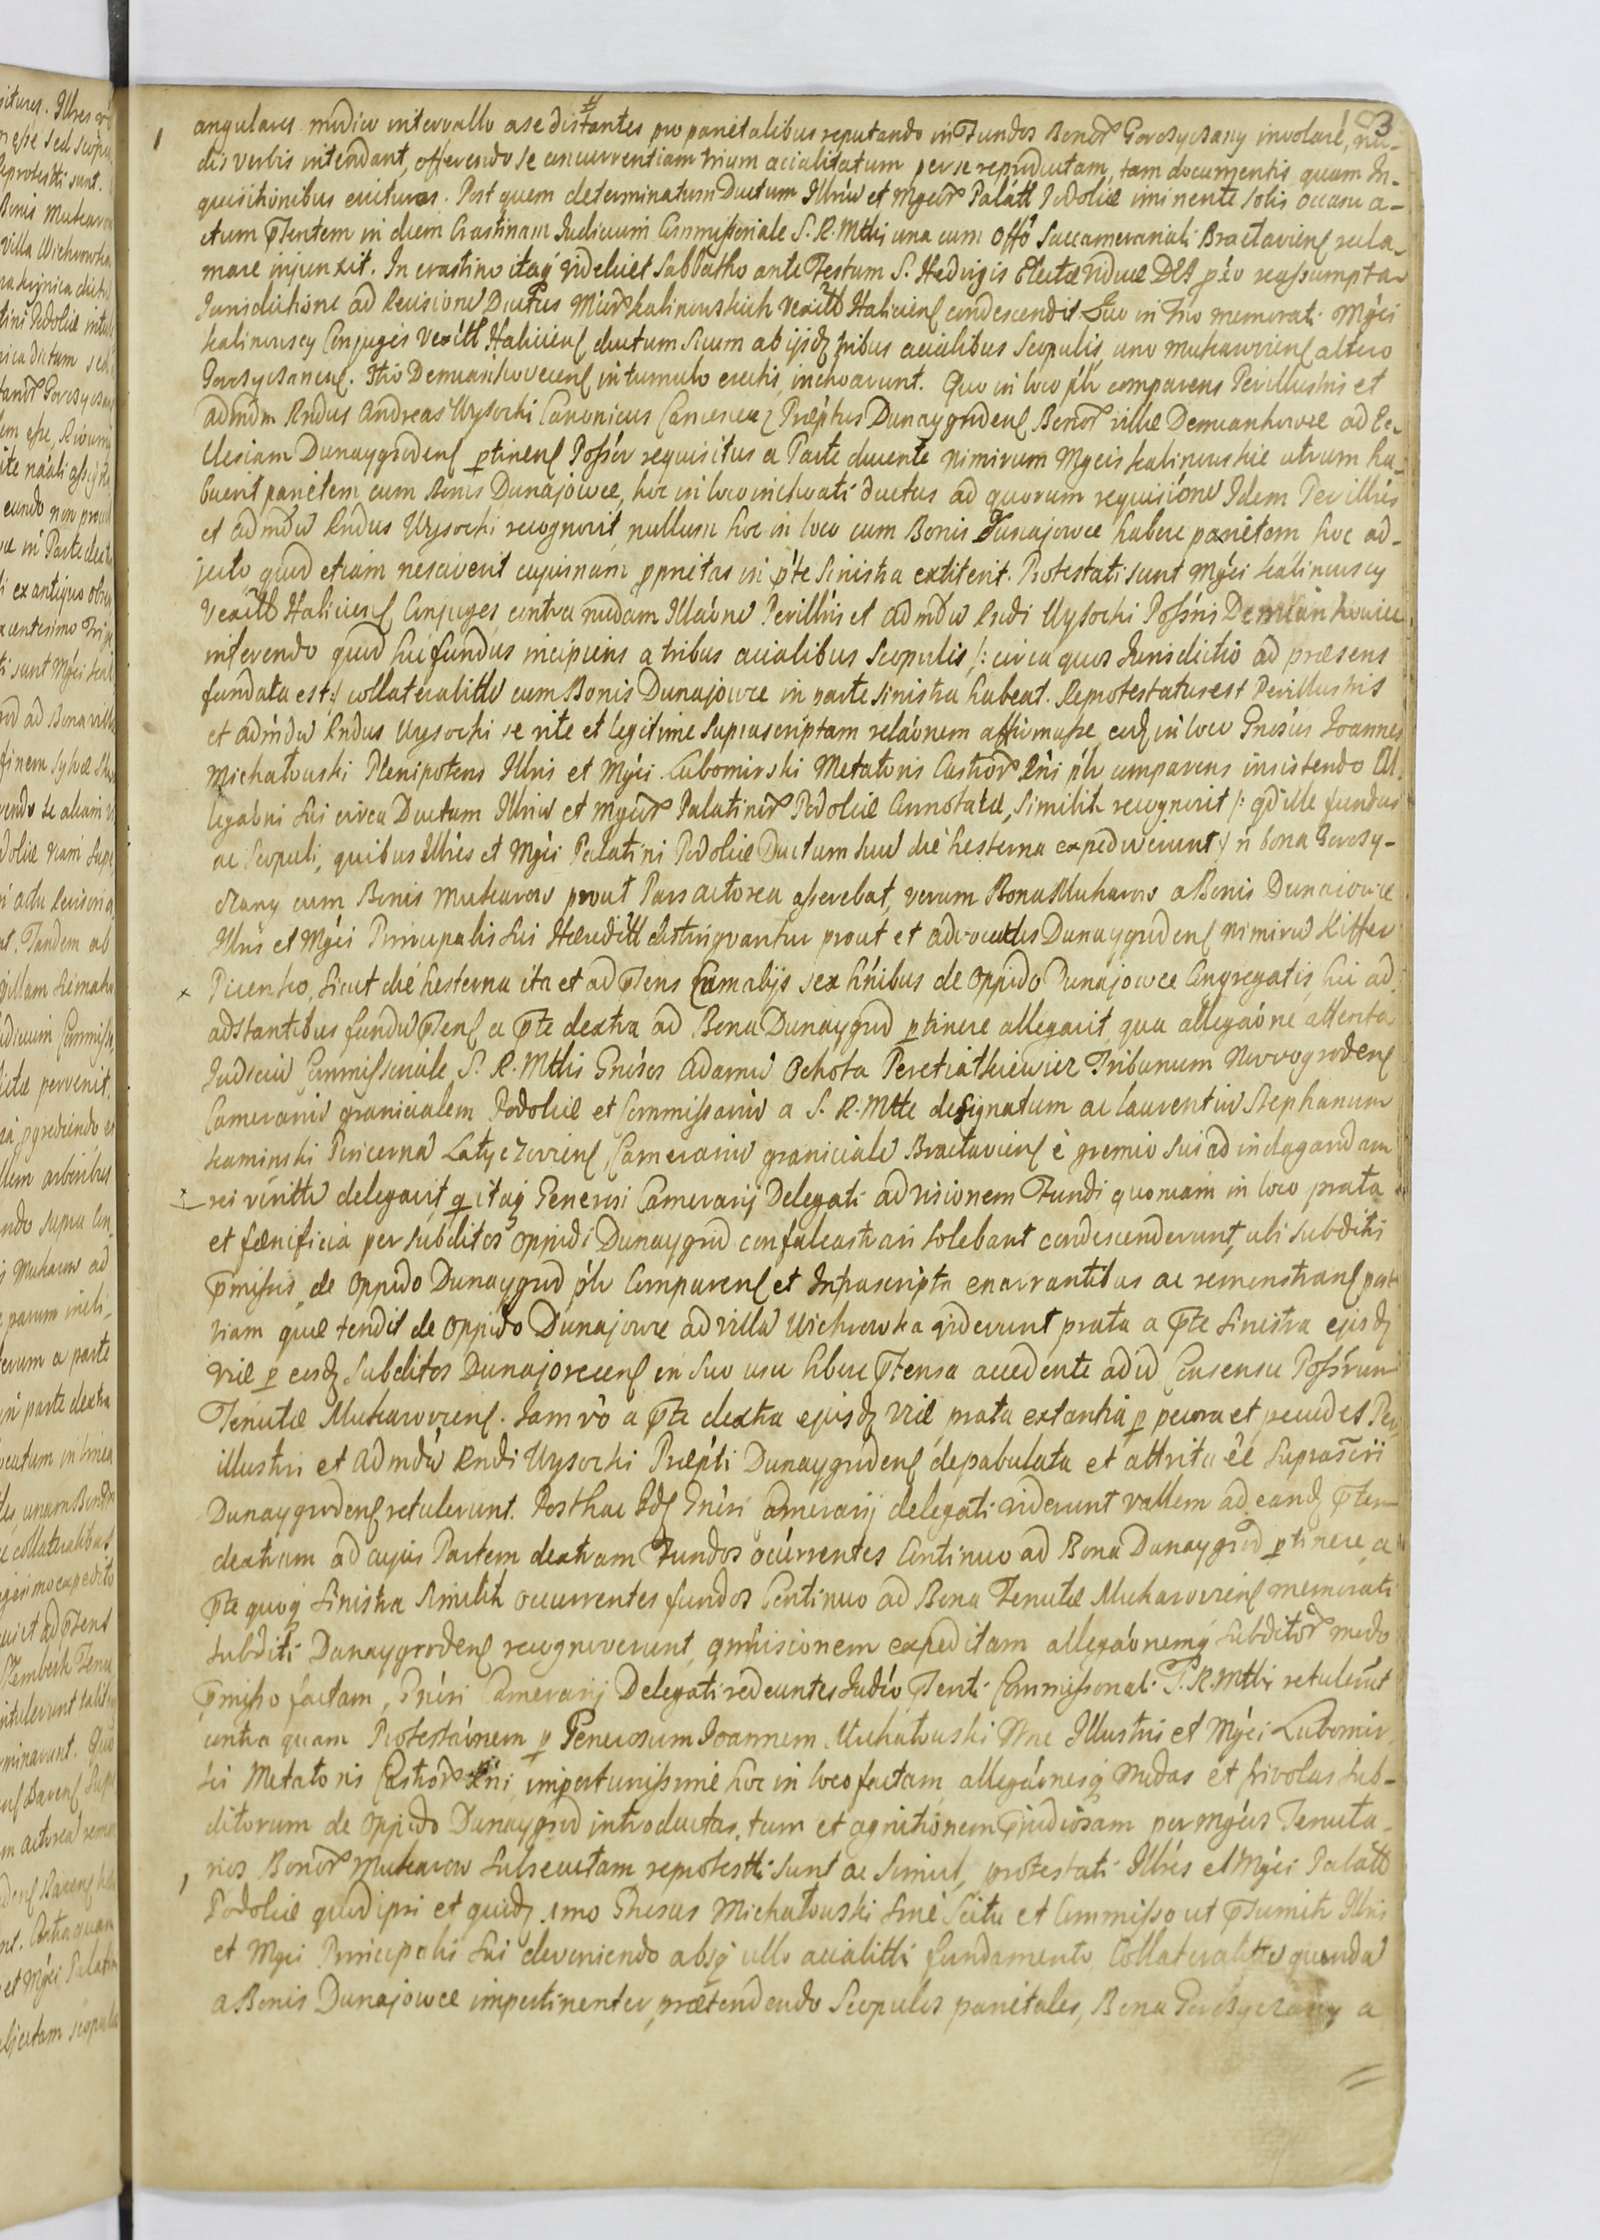 3
angulares modico intervallo a se distantes pro parietalibus reputando in Fundos Bonor Goroszyczany involare, nu-
dis verbis intendant, offerendo se concurrentiam trium acialitatum per se reproductam, tam documentis quam In-
quisitionibus evicturos. Post quem determinatum Ductum Illriu et Mgcor Palatt Podoliæ iminente Solis occasu a-
ctum Ptentem in diem Crastinam Iudicium Commissoriale S. R. Mttis una cum Offo Succamerariali Bractaviens recla-
mare injunxit. In crastino itaq videlicet Sabbatho ante Festum S. Hedvigis Electæ viduæ reassumpta
Iurisdictione ad Revisione Ductus Kalinowskich Vexill Haliciens condescendit Quo in Trio memorati Mgci
Kalinowscy Conjuges Vexill Haliciens ductum Suum ab ijsdz tribus acialibus Scopulis, uno Mukarowiens altero
Goroszyczanens. 3tio Demiankovecens in tumulo erectis, inchoarunt. Quo in loco plr comparens Perillustris et
admdm Rndus Andreas Wysocki Canonicus Camenecz Præptus Dunaygrodens Bonor villæ Demiankowce ad Ec-
clesiam Dunaygrodens ptinens Possor requisitus a Parte ducente nimirum Mgcis Kalinowskie utrum ha-
buerit parietem cum Bonis Dunajowce, hoc in loco inchoati ductus ad quorum requisione Idem Perillris
et admdu Rndus Wysocki recognovit, nullum hoc in loco cum Bonis Dunajowce habere parietem hoc ad-
jecto quod etiam nesciverit cujusnam pprietas in pte Sinistra extiterit. Protestati sunt Mgci Kalinowscy
Vexill Haliciens Conjuges, contra nudam Perillris et admdu Rndi Wysocki Possris Demiankowice
inferendo quod hic fundus incipiens a tribus acialibus Scopulis /: circa quos Iurisdictio ad præsens
fundata est :/ collateralitte cum Bonis Dunajowce in parte sinistra habeat. Reprotestatus est Perillustris
et admdu Rndus Wysocki se rite et legitime Suprascriptam relaonem affirmasse, eodz in loco Gnosus Ioannes
Michałowski Plenipotens Illris et Mgci Lubomirski Metatoris Castror Rni plr comparens insistendo All-
legaoni Sui circa Ductum Illriu et Mgcor Palatinor Podoliæ Annotatæ, Similitr recognovit /: qd ille fundus
ac Scopuli, quibus Illres et Mgci Palatini Podoliæ Ductum Suu die hesterna expediverunt :/ n bona Gorosz-
czany cum Bonis Mukarow prout Pars actorea asserebat, verum Bona Mukarow a Bonis Dunaiowce
Illris et Mgci Principalis Sui Hæreditt distingvantur prout et advocatus Dunaygrodens nimiru
Sicut die hesterna ita et ad Ptens Cum alijs sex hnibus de Oppido Dunajowce Congregatis, hic ad
adstantibus fundu Ptens a Pte dextra ad Bona Dunaygrod ptinere allegavit, qua allegaone attenta
Iudiciu Commissoriale S. R. Mttis Gnosos Adamu Ochota Peretiatkiewicz Tribunum Novogrodens
Camerariu granicialem Podoliæ et Commissariu a S. R. Mtte designatum ac Laurentiu Stephanum
Kaminski Pincerna Latyczoviens, Camerariu graniciale Bractaviens e gremio Sui ad indagandam
rei veritte delegavit q itaq Generosi Camerarij Delegati ad visionem Fundi quoniam in loco prata
et fænificia per Subditos Oppidi Dunaygrod confalcastrari solebant condescenderunt, ubi Subditi
Pmissis, de Oppido Dunaygrod plr Comparens et Infrascripta enarrantibus ac remonstrans post
viam quæ tendit de Oppido Dunajowce ad villa Wichrowka viderunt prata a Pte Sinistra ejusdz
viæ p eosdz Subditos Dunajovecens in Suo usu hbere Ptensa accedente ad id Consensu Possrum
Tenutæ Mukarowiens. Iam vo a Pte dextra ejusdz viæ prata extantia p pecora et pecudes Per-
illustri et Admdu Rndi Wysocki Præpti Dunaygrodens depabulata et attrita ee Suprascri
Dunaygrodens retulerunt. Posthac Idz Gnosi Camerarij delegati viderunt vallem ad eandz Ptem
dextram ad cujus Partem dextram Fundos ocurrentes Continuo ad Bona Dunaygrod ptinere, a
Pte quoq Sinistra Similitr occurrentes fundos Continuo ad Bona Tenutæ Mukarowiens memorati
Subditi Dunaygrodens recognoverunt, qm visionem expeditam allegaonemq Subditor modo
Pmisso factam, Gnosi Camerarij Delegati redeuntes Iudio Ptenti Commissoriali S. R. Mttis retulerunt
contra quam Protestaonem p Generosum Ioannem Michałowski Nne Illustris et Mgci Lubomir-
ski Metatoris Castror Rni, importunissime hoc in loco factam, allegaonesq nudas et frivolas Sub-
ditorum de Oppido Dunaygrod introductas, tum et agnitionem Pjudiosam per Mgcos Tenuta-
rios Bonor Mukarow Subsecutam reprotestti sunt ac Simul, protestati Illres et Mgci Palatt
Podoliæ quod ipsi et quidz imo Gnosus Michałowski Sine Scitu et Commisso ut Psumitr Illris
et Mgci Principalis Sui deveniendo absq ullo acialitti fundamento Collateralitte quanda
a Bonis Dunajowce impertinenter, prætendendo Scopulos parietales, Bona Goroszczany a